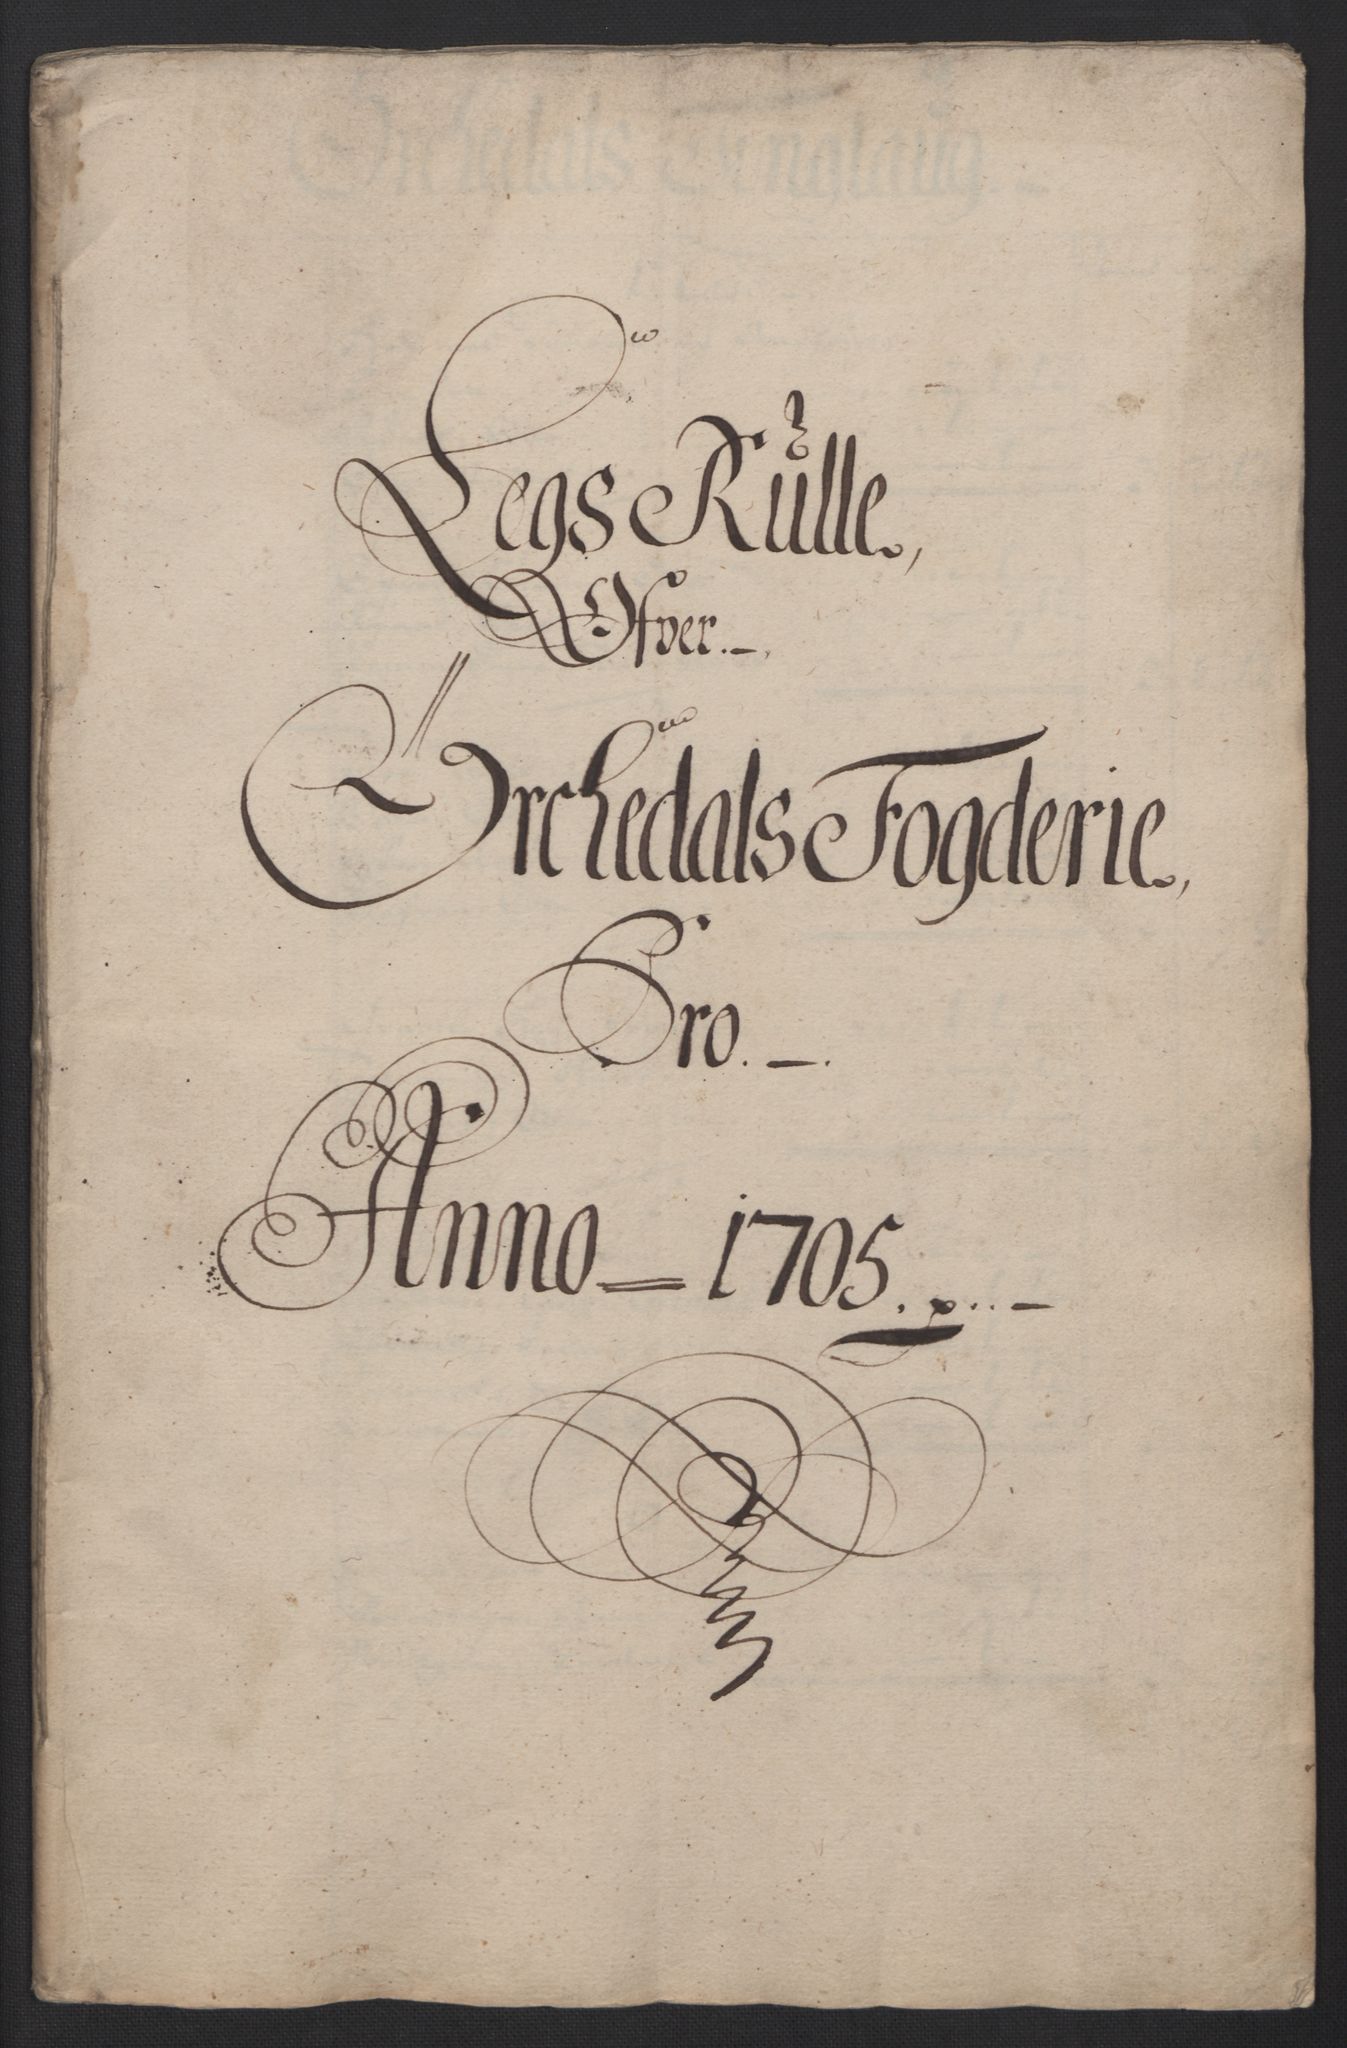 Legs Rulle,
Ofver.-.
Orchedals Fogderie,
Pro.-.
Anno = 1705...-